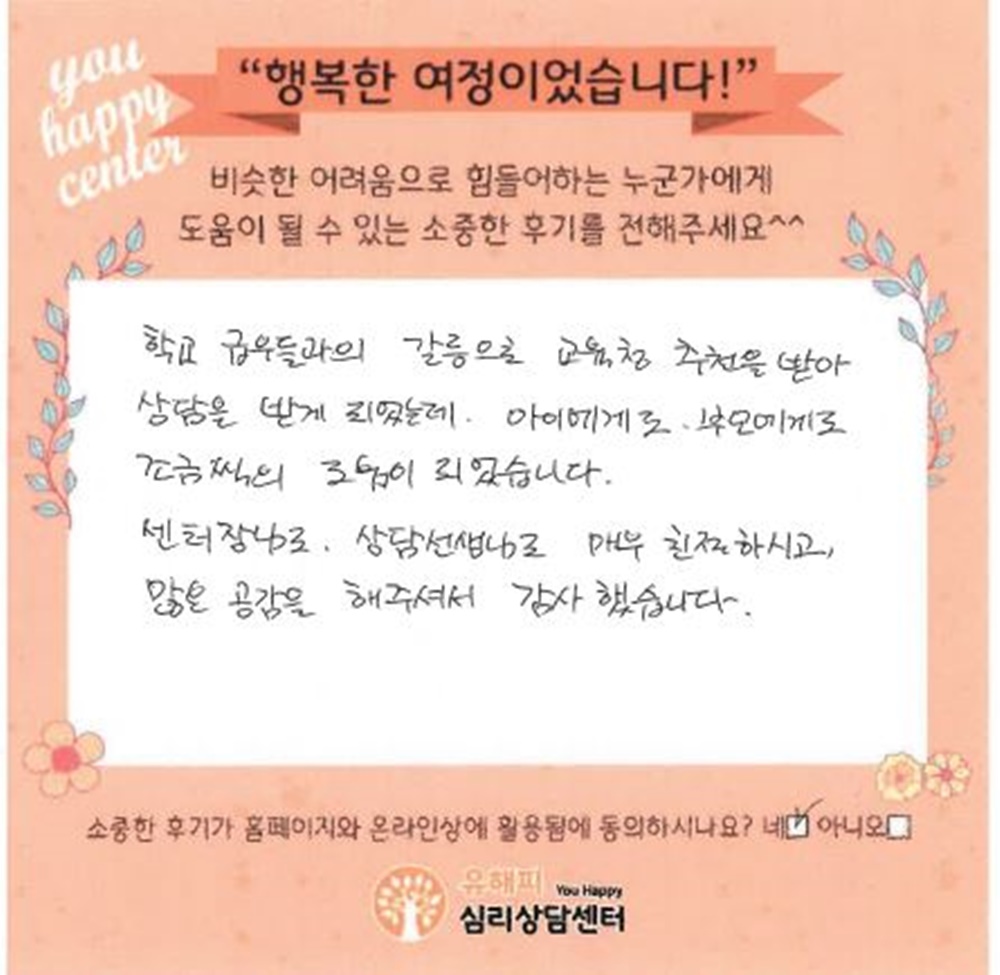 you
happy
center
“행복한 여정이었습니다!”
비슷한 어려움으로 힘들어하는 누군가에게
도움이 될 수 있는 소중한 후기를 전해주세요^^
학교 급우들과의 갈등으로 교육청 추천을 받아
상담을 받게 되었는데. 아이에게도. 부모에게도
조금씩의 도움이 되었습니다.
센터장님도. 상담선생님도 매우 친절하시고,
많은 공감을 해주셔서 감사했습니다.
소중한 후기가 홈페이지와 온라인상에 활용됨에 동의하시나요? 네☑ 아니오☐
유해피 You Happy
심리상담센터